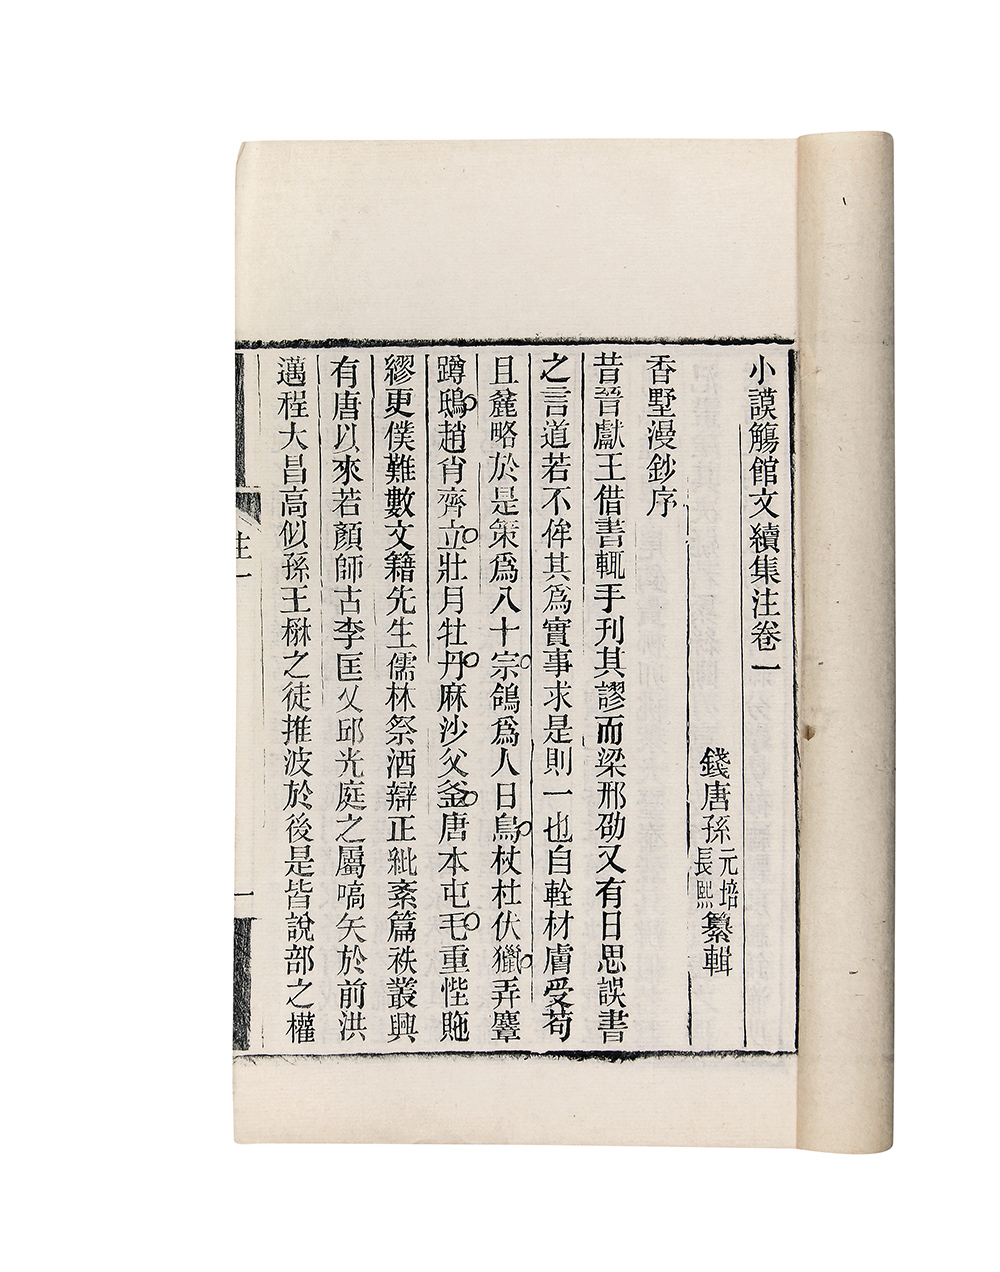 小謨觴館文續集注卷一
錢唐孫元培長熙纂輯
香墅漫鈔序
昔晉獻王借書輒手刊其謬而梁邢劭又有日思誤書
之言道若不侔其爲實事求是則一也自輇材膚受苟
且麄略於是策爲八十宗鴿爲人日鳥杖杜伏獵弄麞
蹲鴟趙肖齊立壯月牡丹麻沙父釜唐本屯毛重悂貤
繆更僕難數文籍先生儒林祭酒辯正紕紊篇袟叢興
有唐以來若顏師古李匡乂邱光庭之屬嚆矢於前洪
邁程大昌高似孫王楙之徒推波於後是皆說部之權
注一
一